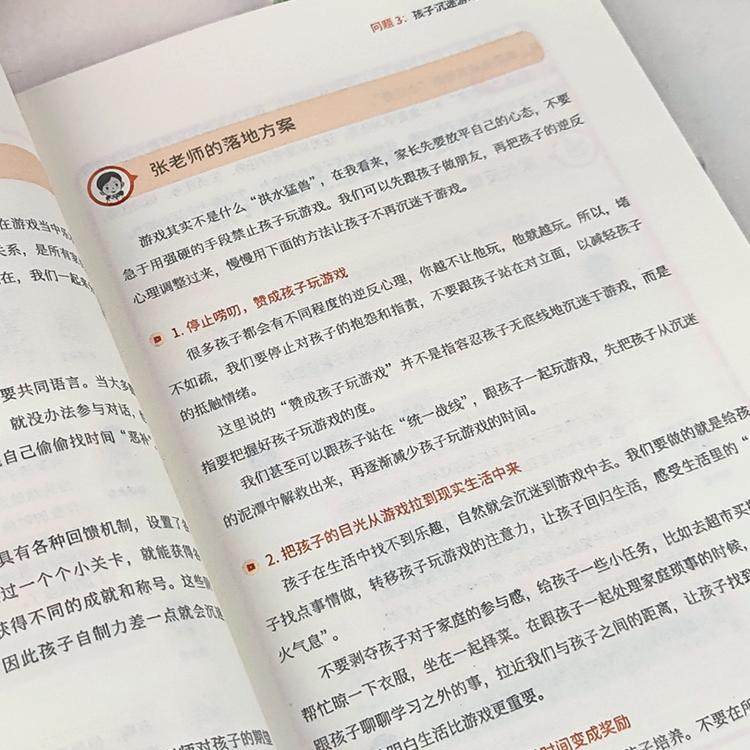 在游戏当中
关系，是所有
在，我们一起来
要共同语言。当大多
就没办法参与对话，
自己偷偷找时间“恶补
具有各种回馈机制，设置了各
过一个个小关卡，就能获得
获得不同的成就和称号。这些
因此孩子自制力差一点就会沉迷
师对孩子的期望
问题 3：孩子沉迷游
张老师的落地方案
游戏其实不是什么“洪水猛兽”，在我看来，家长先要放平自己的心态，不要
急于用强硬的手段禁止孩子玩游戏。我们可以先跟孩子做朋友，再把孩子的逆反
心理调整过来，慢慢用下面的方法让孩子不再沉迷于游戏。
1. 停止唠叨，赞成孩子玩游戏
很多孩子都会有不同程度的逆反心理，你越不让他玩，他就越玩。所以，堵
不如疏，我们要停止对孩子的抱怨和指责，不要跟孩子站在对立面，以减轻孩子
的抵触情绪。
这里说的“赞成孩子玩游戏”并不是指容忍孩子无底线地沉迷于游戏，而是
指要把握好孩子玩游戏的度。
我们甚至可以跟孩子站在“统一战线”，跟孩子一起玩游戏，先把孩子从沉迷
的泥潭中解救出来，再逐渐减少孩子玩游戏的时间。
2. 把孩子的目光从游戏拉到现实生活中来
孩子在生活中找不到乐趣，自然就会沉迷到游戏中去。我们要做的就是给孩
子找点事情做，转移孩子玩游戏的注意力，让孩子回归生活，感受生活里的“
火气息”。
不要剥夺孩子对于家庭的参与感，给孩子一些小任务，比如去超市买
帮忙晾一下衣服，坐在一起择菜。在跟孩子一起处理家庭琐事的时候，
跟孩子聊聊学习之外的事，拉近我们与孩子之间的距离，让孩子找到
明白生活比游戏更重要。
时间变成奖励
子培养。不要在所